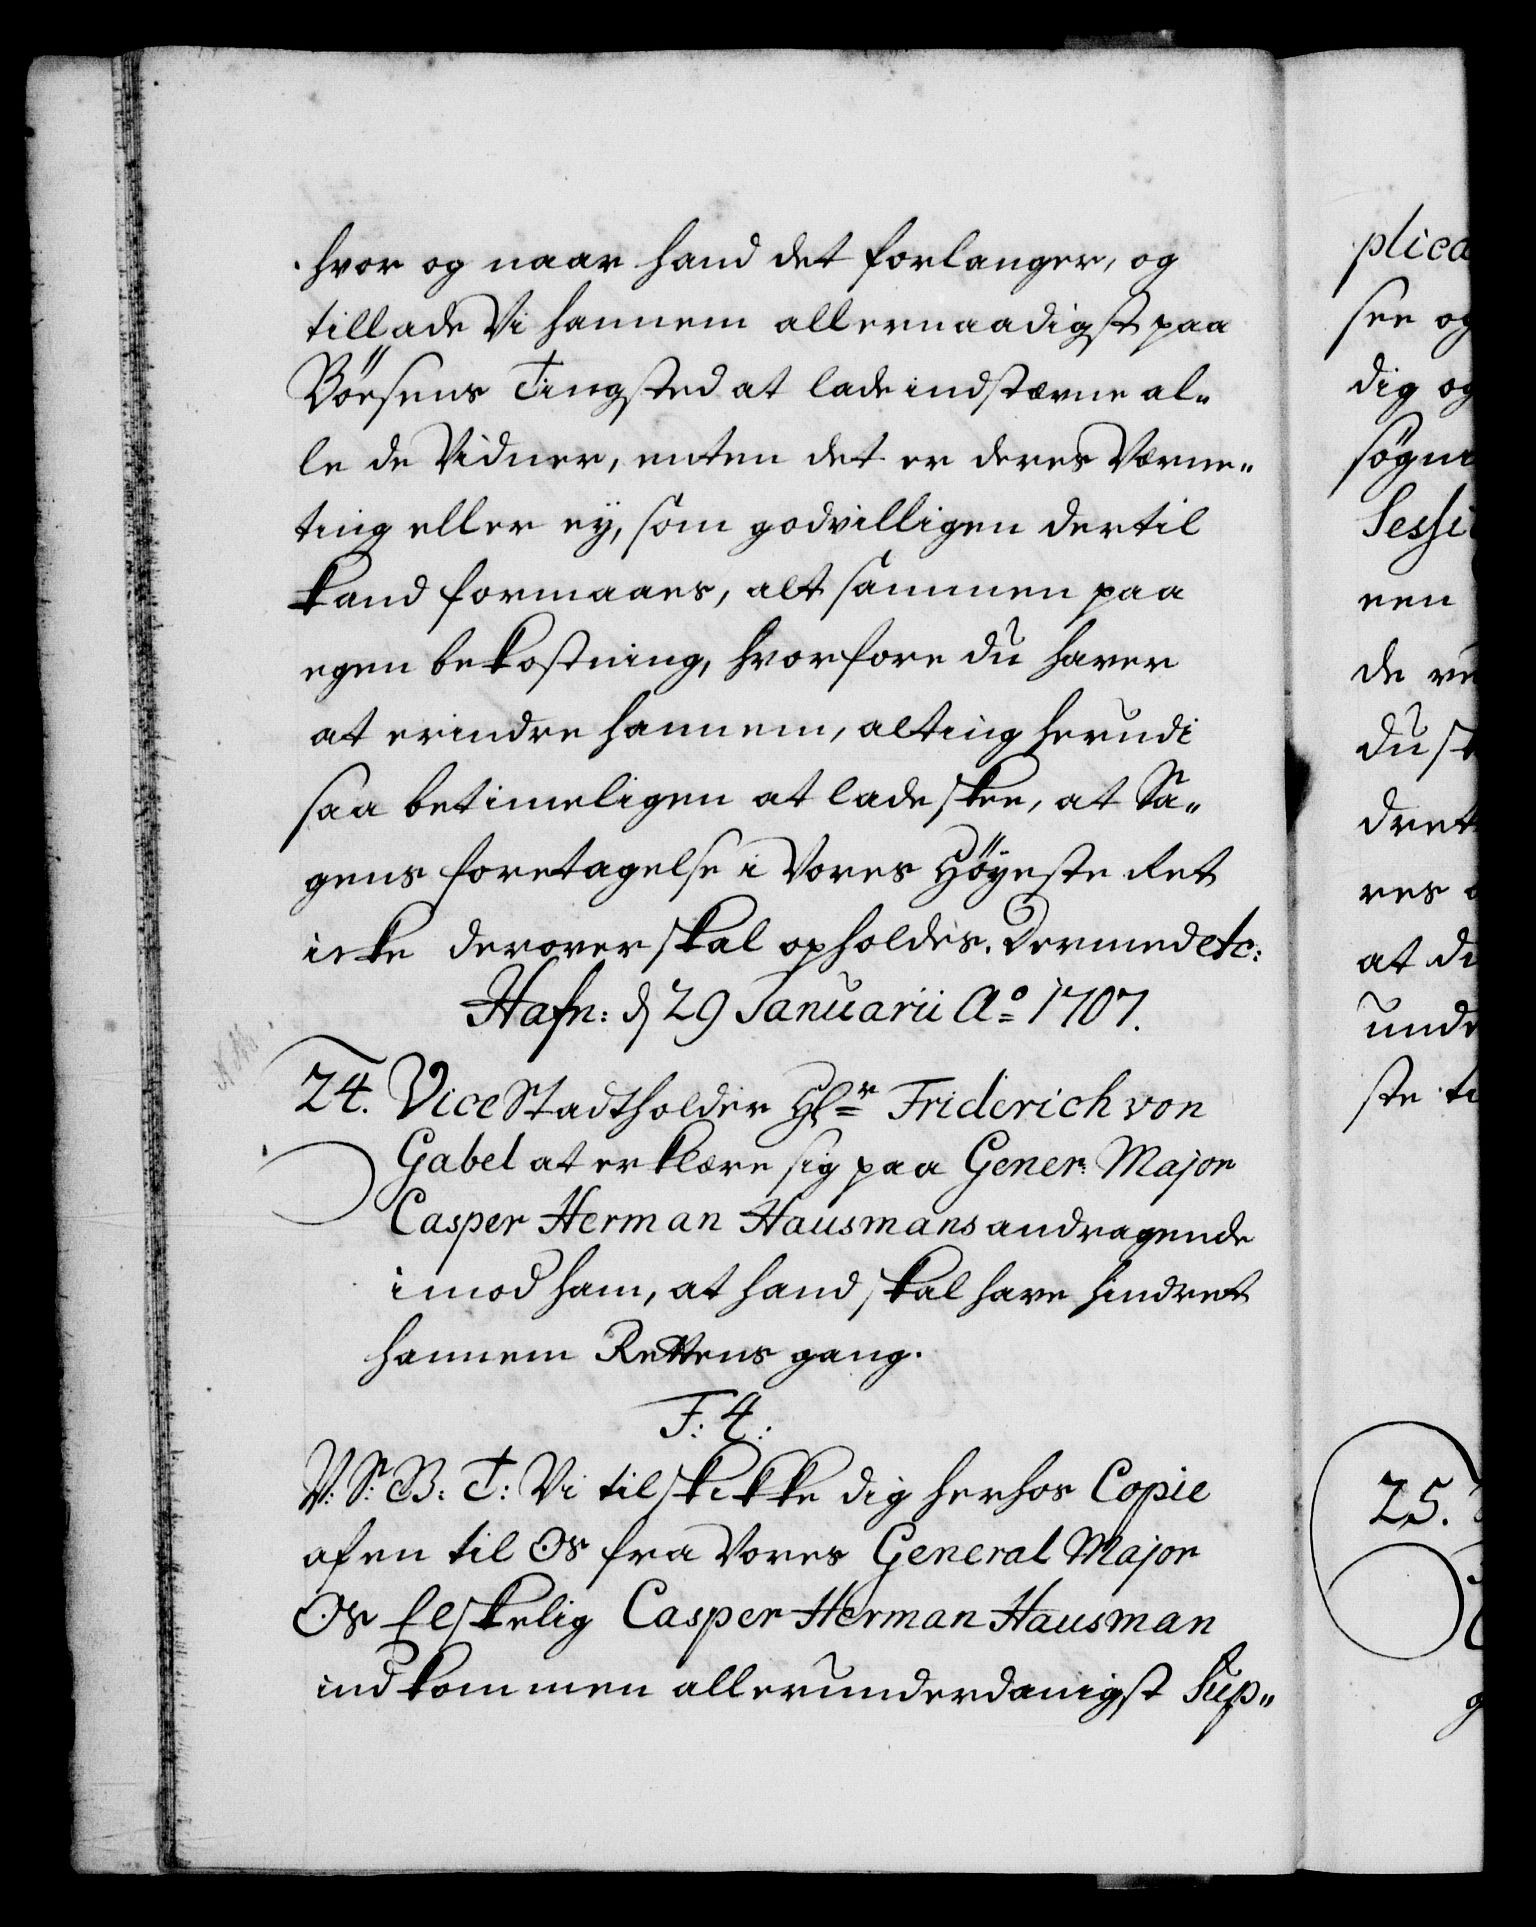 hvor og naar hand det forlanger, og
tillade Vi hannem allernaadigst paa
Börsens Tingsted at lade indstævne al„
le de Vidner, enten det er deres Værne„
ting eller ey, som godvilligen dertil
kand formaaes, alt sammen paa
egen bekostning, hvorfore du haver
at erindre hannem, alting herudi
saa betimeligen at lade skee, at Sa„
gens foretagelse i Vores Höyeste Ret
icke derover skal opholdes. Dermed etc:
Hafn: d 29 Januarii Ao 1707.
24. Vice Stadtholder Hr Friderich von
Gabel at erklære sig paa Gener: Major
Casper Herman Hausmans andragende
imod ham, at hand skal have hindret
hannem Rettens gang.
F: 4:
V: S: B: T: Vi tilskikke dig herhos Copie
af en til Os fra Vores General Major
Os Elskelig Casper Herman Hausman
indkommen allerunderdanigst Sup„
plica
see og
dig og
Sessi
een
de
du
dret
res
at
unde
ste
25.